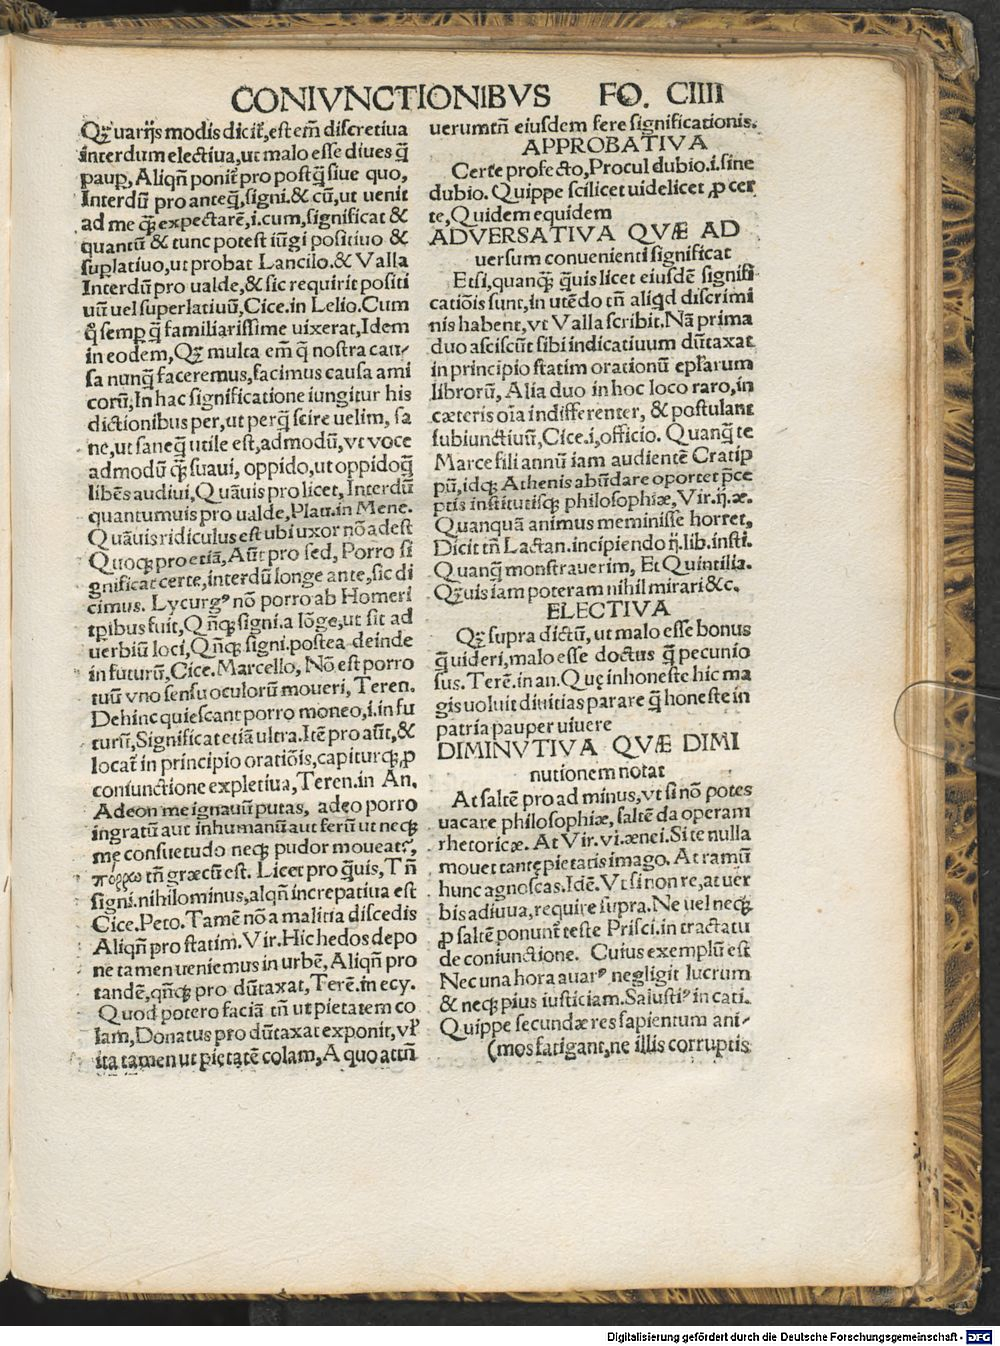 CONIVNCTIONIBVS FO. CIIII
Qꝫ uarijs modis dicit̄, est em̄ discretiua
interdum electiua, ut malo esse diues q̄
paup, Aliqn̄ ponit̄ pro postq̄ siue quo,
Interdū pro anteq̄, signi. & cū, ut uenit
ad me qꝫ expectarē, i. cum, significat &
quantū & tunc potest iūgi positiuo &
suplatiuo, ut probat Lancilo. & Valla
Interdū pro ualde, & sic requirit positi
uū uel superlatiuū, Cice. in Lelio. Cum
q̊ semp q̄ familiarissime uixerat, Idem
in eodem, Qꝫ multa em̄ q̄ nostra cau⸗
sa nunq̄ faceremus, facimus causa ami
corū, In hac significatione iungitur his
dictionibus per, ut perq̄ scire uelim, sa
ne, ut saneq̄ utile est, admodū, vt voce
admodū qꝫ suaui, oppido, ut oppidoq̄
libēs audiui, Quāuis pro licet, Interdū
quantumuis pro ualde, Plau. in Mene.
Quāuis ridiculus est ubi uxor nō adest
Quoqꝫ pro etiā, Aūt pro sed, Porro si
gnificat certe, interdū longe ante, sic di
cimus. Lycurgꝰ nō porro ab Homeri
tpibus fuit, Qn̄qꝫ signi. a lōge, ut sit ad
uerbiū loci, Qn̄qꝫ signi. postea deinde
in futurū, Cice. Marcello, Nō est porro
tuū vno sensu oculorū moueri, Teren.
Dehinc quiescant porro moneo, i. in fu
turū, Significat etiā ultra. Itē pro aūt, &
locat̄ in principio oratiōis, capiturqꝫ ꝓ
coniunctione expletiua, Teren. in An.
Adeon me ignauū putas, adeo porro
ingratū aut inhumanū aut ferū ut neqꝫ
me consuetudo neqꝫ pudor moueat?,
πόρρω tn̄ græcū est. Licet pro q̄uis, Tn̄
signi. nihilominus, alqn̄ increpatiua est
Cice. Peto. Tamē nō a malitia discedis
Aliqn̄ pro statim. Vir. Hic hedos depo
ne tamen ueniemus in urbē, Aliqn̄ pro
tandē, qn̄qꝫ pro dūtaxat, Terē. in ecy.
Quod potero faciā tn̄ ut pietatem co
lam, Donatus pro dūtaxat exponit, vł
ita tamen ut pietatē colam, A quo attn̄
uerumtn̄ eiusdem fere significationis.
APPROBATIVA
Certe profecto, Procul dubio. i. sine
dubio. Quippe scilicet uidelicet ꝓ cer
te, Quidem equidem
ADVERSATIVA QVÆ AD
uersum conuenienti significat
Etsi, quanqꝫ q̄uis licet eiusdē signifi
catiōis sunt, in utēdo tn̄ aliqd discrimi
nis habent, vt Valla scribit. Nā prima
duo asciscūt sibi indicatiuum dūtaxat
in principio statim orationū epłarum
librorū, Alia duo in hoc loco raro, in
cæteris oīa indifferenter, & postulant
subiunctiuū, Cice. i, officio. Quanq̄ te
Marce fili annū iam audientē Cratip
pū, idqꝫ Athenis abūdare oportet p̄ce
ptis institutisqꝫ philosophiæ, Vir. ij. æ.
Quanquā animus meminisse horret,
Dicit tn̄ Lactan. incipiendo ij. lib. insti.
Quanq̄ monstrauerim, Et Quintilia.
Qꝫuis iam poteram nihil mirari &c.
ELECTIVA
Qꝫ supra dictū, ut malo esse bonus
q̄ uideri, malo esse doctus q̄ pecunio
sus. Terē. in an. Quę inhoneste hic ma
gis uoluit diuitias parare q̄ honeste in
patria pauper uiuere
DIMINVTIVA QVÆ DIMI
nutionem notat
At saltē pro ad minus, vt si nō potes
uacare philosophiæ, saltē da operam
rhetoricæ. At Vir. vi. ænei. Si te nulla
mouet tantę pietatis imago. At ramū
hunc agnoscas. Idē. Vt si non re, at uer
bis adiuua, require supra. Ne uel neqꝫ
ꝓ saltē ponunt̄ teste Prisci. in tractatu
de coniunctione. Cuius exemplū est
Nec una hora auarꝰ negligit lucrum
& neqꝫ pius iusticiam. Salustiꝰ in cati.
Quippe secundæ res sapientum ani⸗
(mos fatigant, ne illis corruptis
Digitalisierung gefördert durch die Deutsche Forschungsgemeinschaft - DFG